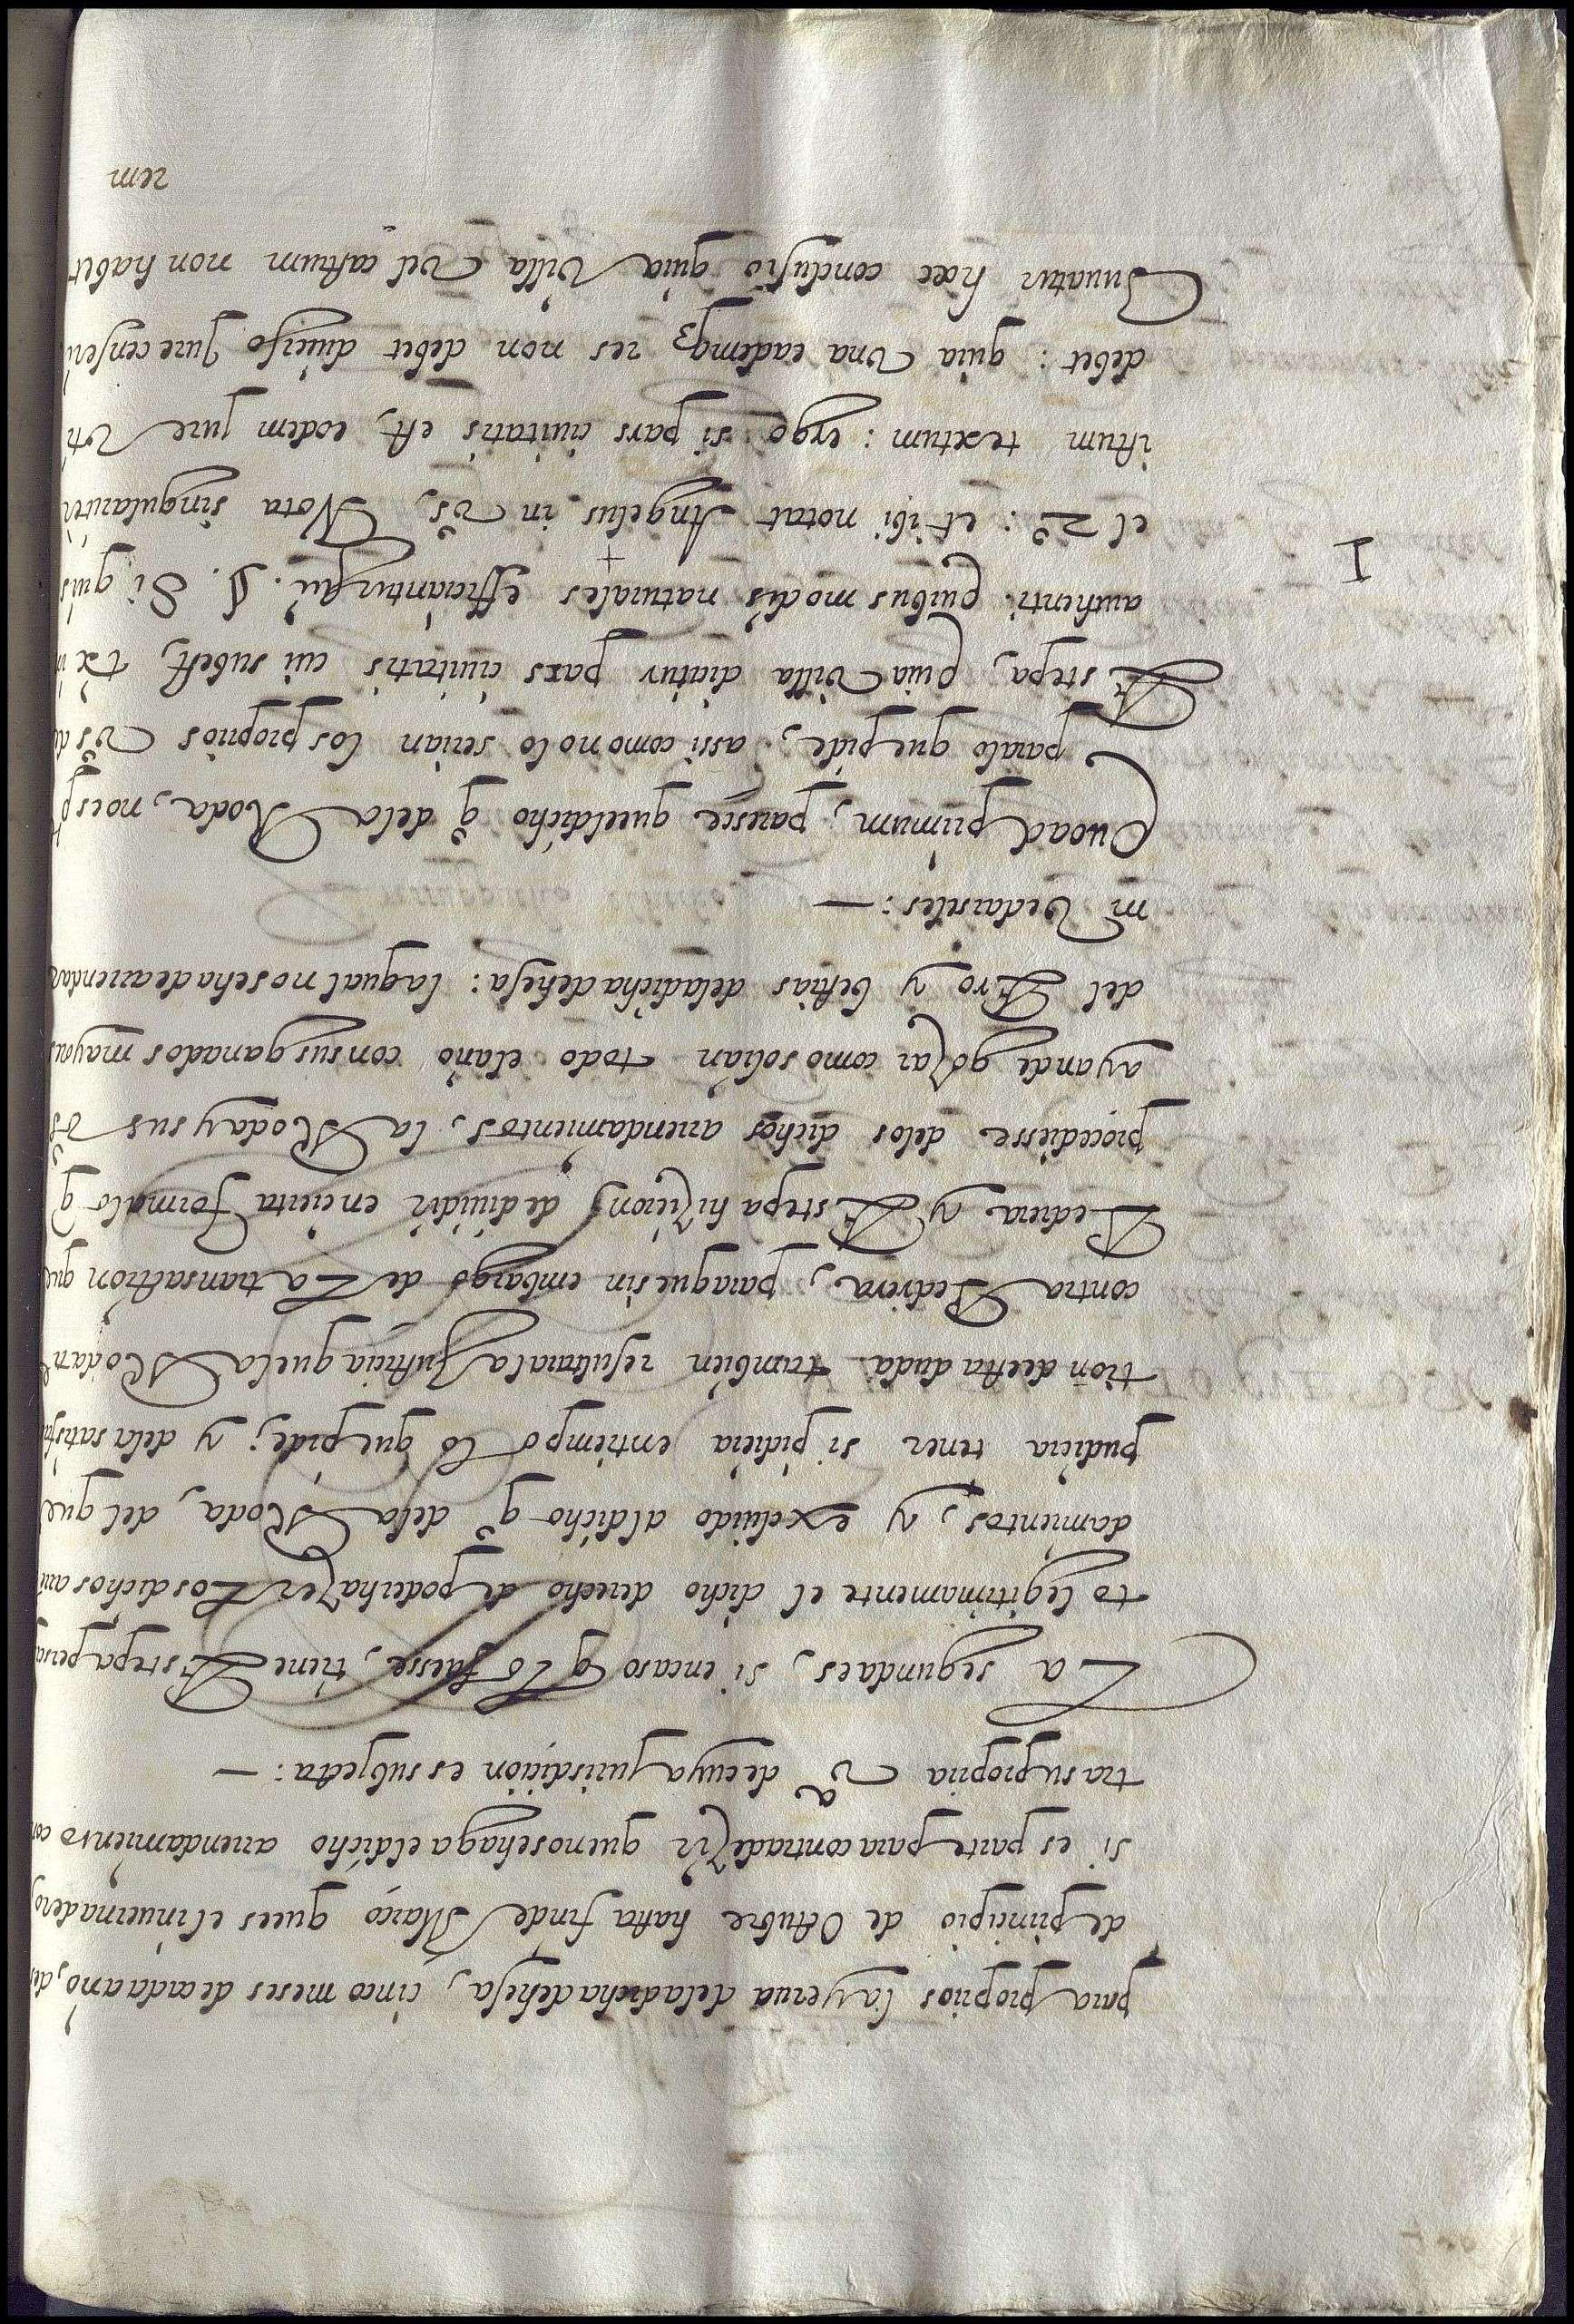 para propios la yerua dela dicha dehesa, cinco meses de cada año, des
de principio de Octubre hasta fin de Março que es el inuernadero,
si es parte para contradezir que no se haga el dicho arrendamiento con
tra su propria vª de cuya jurisdicion es subjecta: —
La segunda es, si en caso q̃ lo fuesse, tiene Estepa
to legitimamente el dicho derecho de poder hazer Los dichos arre
damientos, y excluido al dicho qº dela Roda, del que
pudiera tener si pidiera en tiempo lo que pide; y dela satisfa
tion desta duda tambien resultara la Justicia que la Roda
contra Pedrera, para que sin embargo de La transaction que
Pedrera y Estepa hizieron de diuidir en cierta forma lo q̃
procediesse delos dichos arrendamientos, la Roda y sus vºs
ayan de gozar como solian todo el año con sus ganados mayores
del Ero y bestias dela dicha dehesa: la qual no se ha de arrendar
ni vedarseles: —
Quoad primum, paresce que el dicho qº dela Roda, no es pte
para lo que pide, assi como no lo serian los propios vºs de
Estepa, Quia villa dicitur pars ciuitatis cui subest, tx in
authenti. Quibus modis naturales efficiantur sui. §. Si quis
I
el 2º: et ibi notat Angelus, in vs, Nota singulariter
istum textum: ergo si pars ciuitatis est, eodem jure vti
debet: quia vna eademqȝ res non debet diuerso Jure censeri
Juuatur hæc conclusio quia villa vel castrum non habet
rem